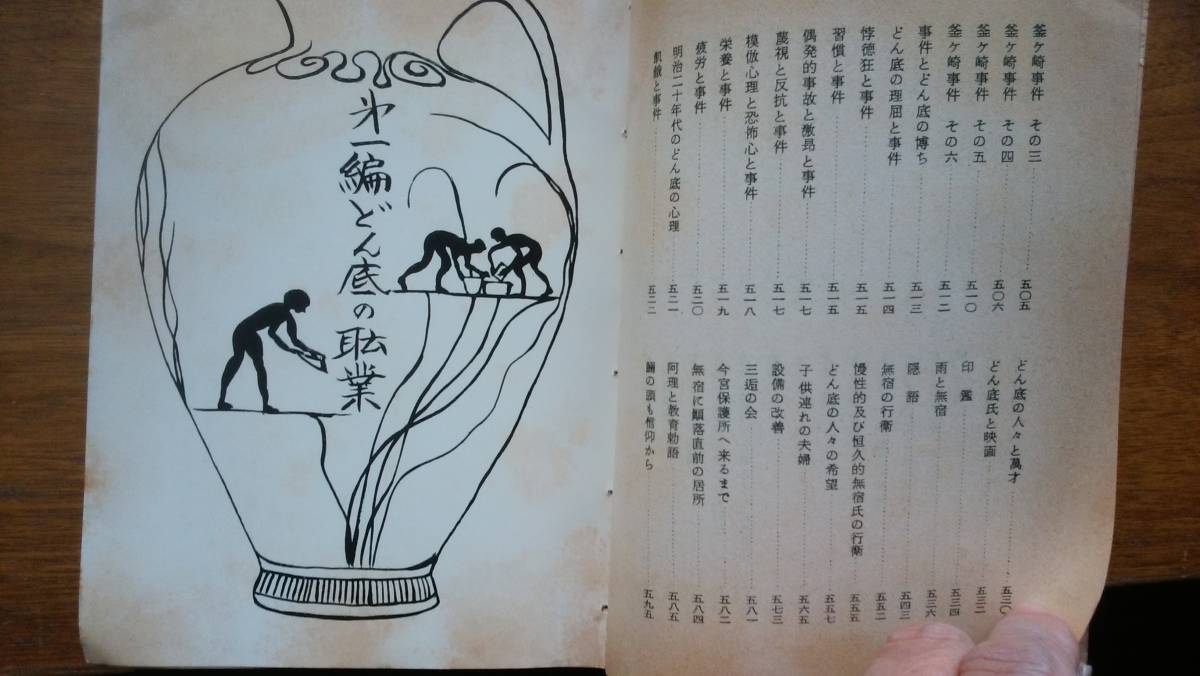 釜ヶ崎事件 その三……五〇五
釜ヶ崎事件 その四……五〇六
釜ヶ崎事件 その五……五一〇
釜ヶ崎事件 その六……五一二
事件とどん底の博ち……五一三
どん底の理屈と事件……五一四
悖徳狂と事件……五一五
習慣と事件……五一五
偶発的事故と激昂と事件……五一七
蔑視と反抗と事件……五一七
模倣心理と恐怖心と事件……五一八
栄養と事件……五一九
疲労と事件……五二〇
明治二十年代のどん底の心理……五二一
飢餓と事件……五二二
どん底の人々と萬才……五三〇
どん底氏と映画……五三二
印鑑……五三四
雨と無宿……五三六
隠語……五四三
無宿の行衛……五五二
慢性的及び恒久的無宿氏の行衛……五五五
どん底の人々の希望……五五七
子供連れの夫婦……五六五
設備の改善……五七三
三垢の会……五八一
今宮保護所へ来るまで……五八二
無宿に顚落直前の居所……五八四
阿理と教育勅語……五八五
鰯の頭も信仰から……五九五
第一編どん底の職業